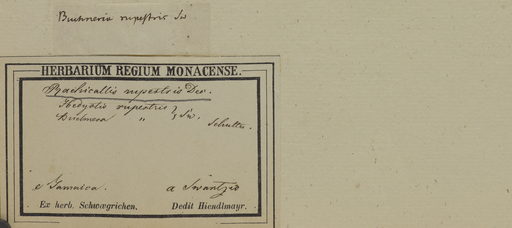 Buchneria rupestris Sw
HERBARIUM REGIUM MONACENSE.
Rachicallis rupestris Dec.
Hedyotis rupestris } Sw.
" Schultes.
e Jamaica. a Swartzio
Ex herb. Schwægrichen. Dedit Hiendlmayr.